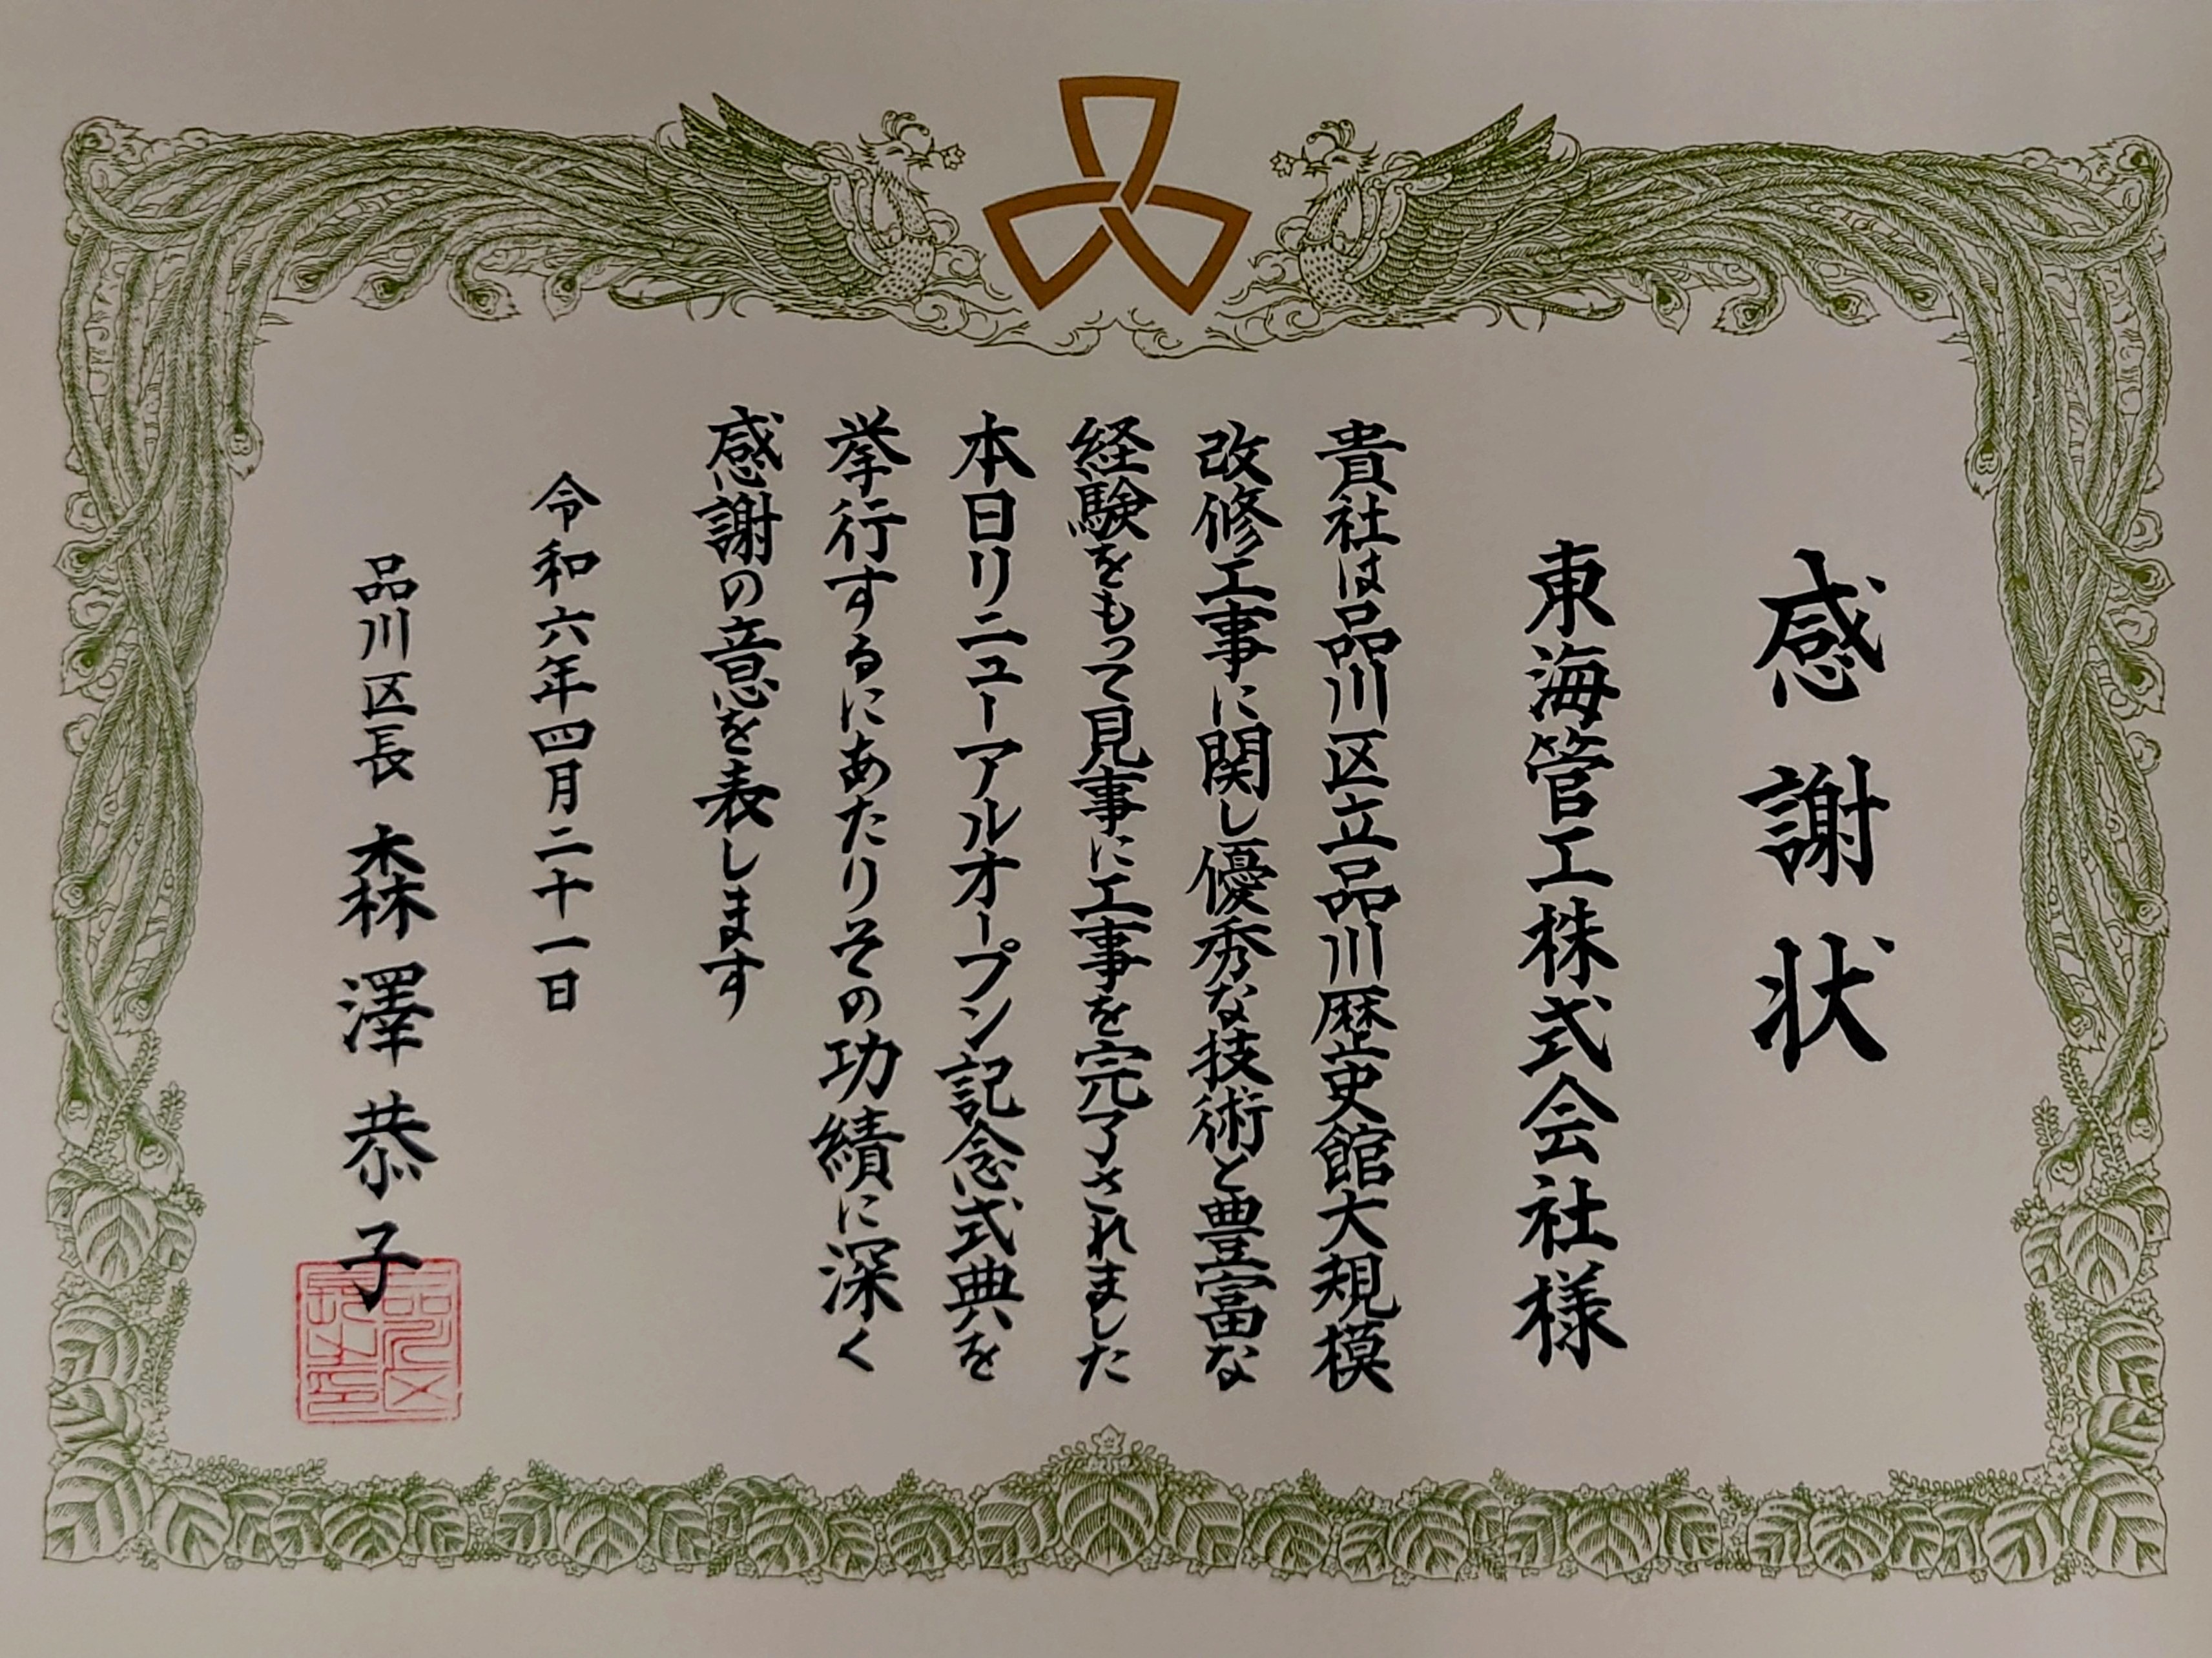 感謝状
東海管工株式会社様
貴社は品川区立品川歴史館大規模
改修工事に関し優秀な技術と豊富な
経験をもって見事に工事を完了されました
本日リニューアルオープン記念式典を
挙行するにあたりその功績に深く
感謝の意を表します
令和六年四月二十一日
品川区長 森澤恭子